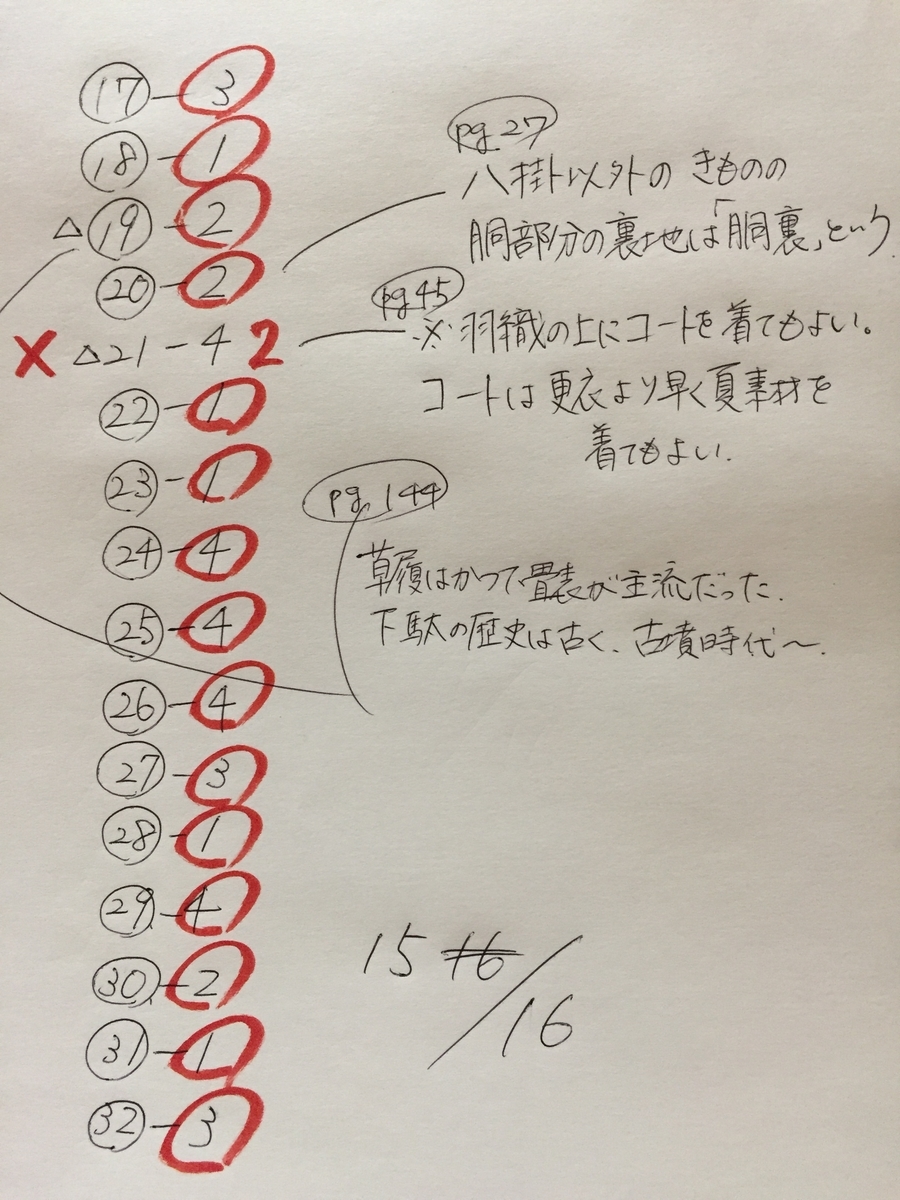 17 - 3
18 - 1
△ 19 - 2
20 - 2
× △ 21 - 4 2
22 - 1
23 - 1
24 - 4
25 - 4
26 - 4
27 - 3
28 - 1
29 - 4
30 - 2
31 - 1
32 - 3
pg.27
八掛ト以外の きものの
胴部分の裏地は「胴裏」という.
pg.45
※羽織の上にコートを着てもよい。
コートは更衣より早く夏素材を
着てもよい.
pg.144
草履はかつて、畳表が主流だった.
下駄の歴史は古く、古墳時代〜.
15 16/16